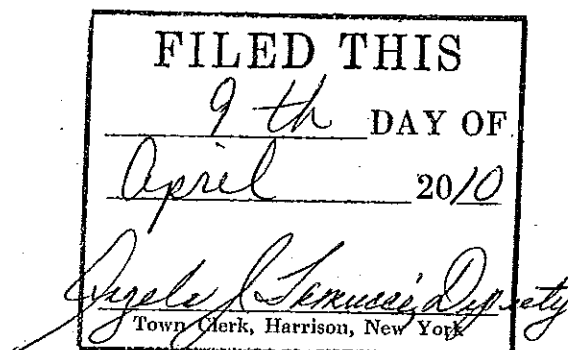 FILED THIS
9th DAY OF
April 2010
Angela J Deputy
Town Clerk, Harrison, New York